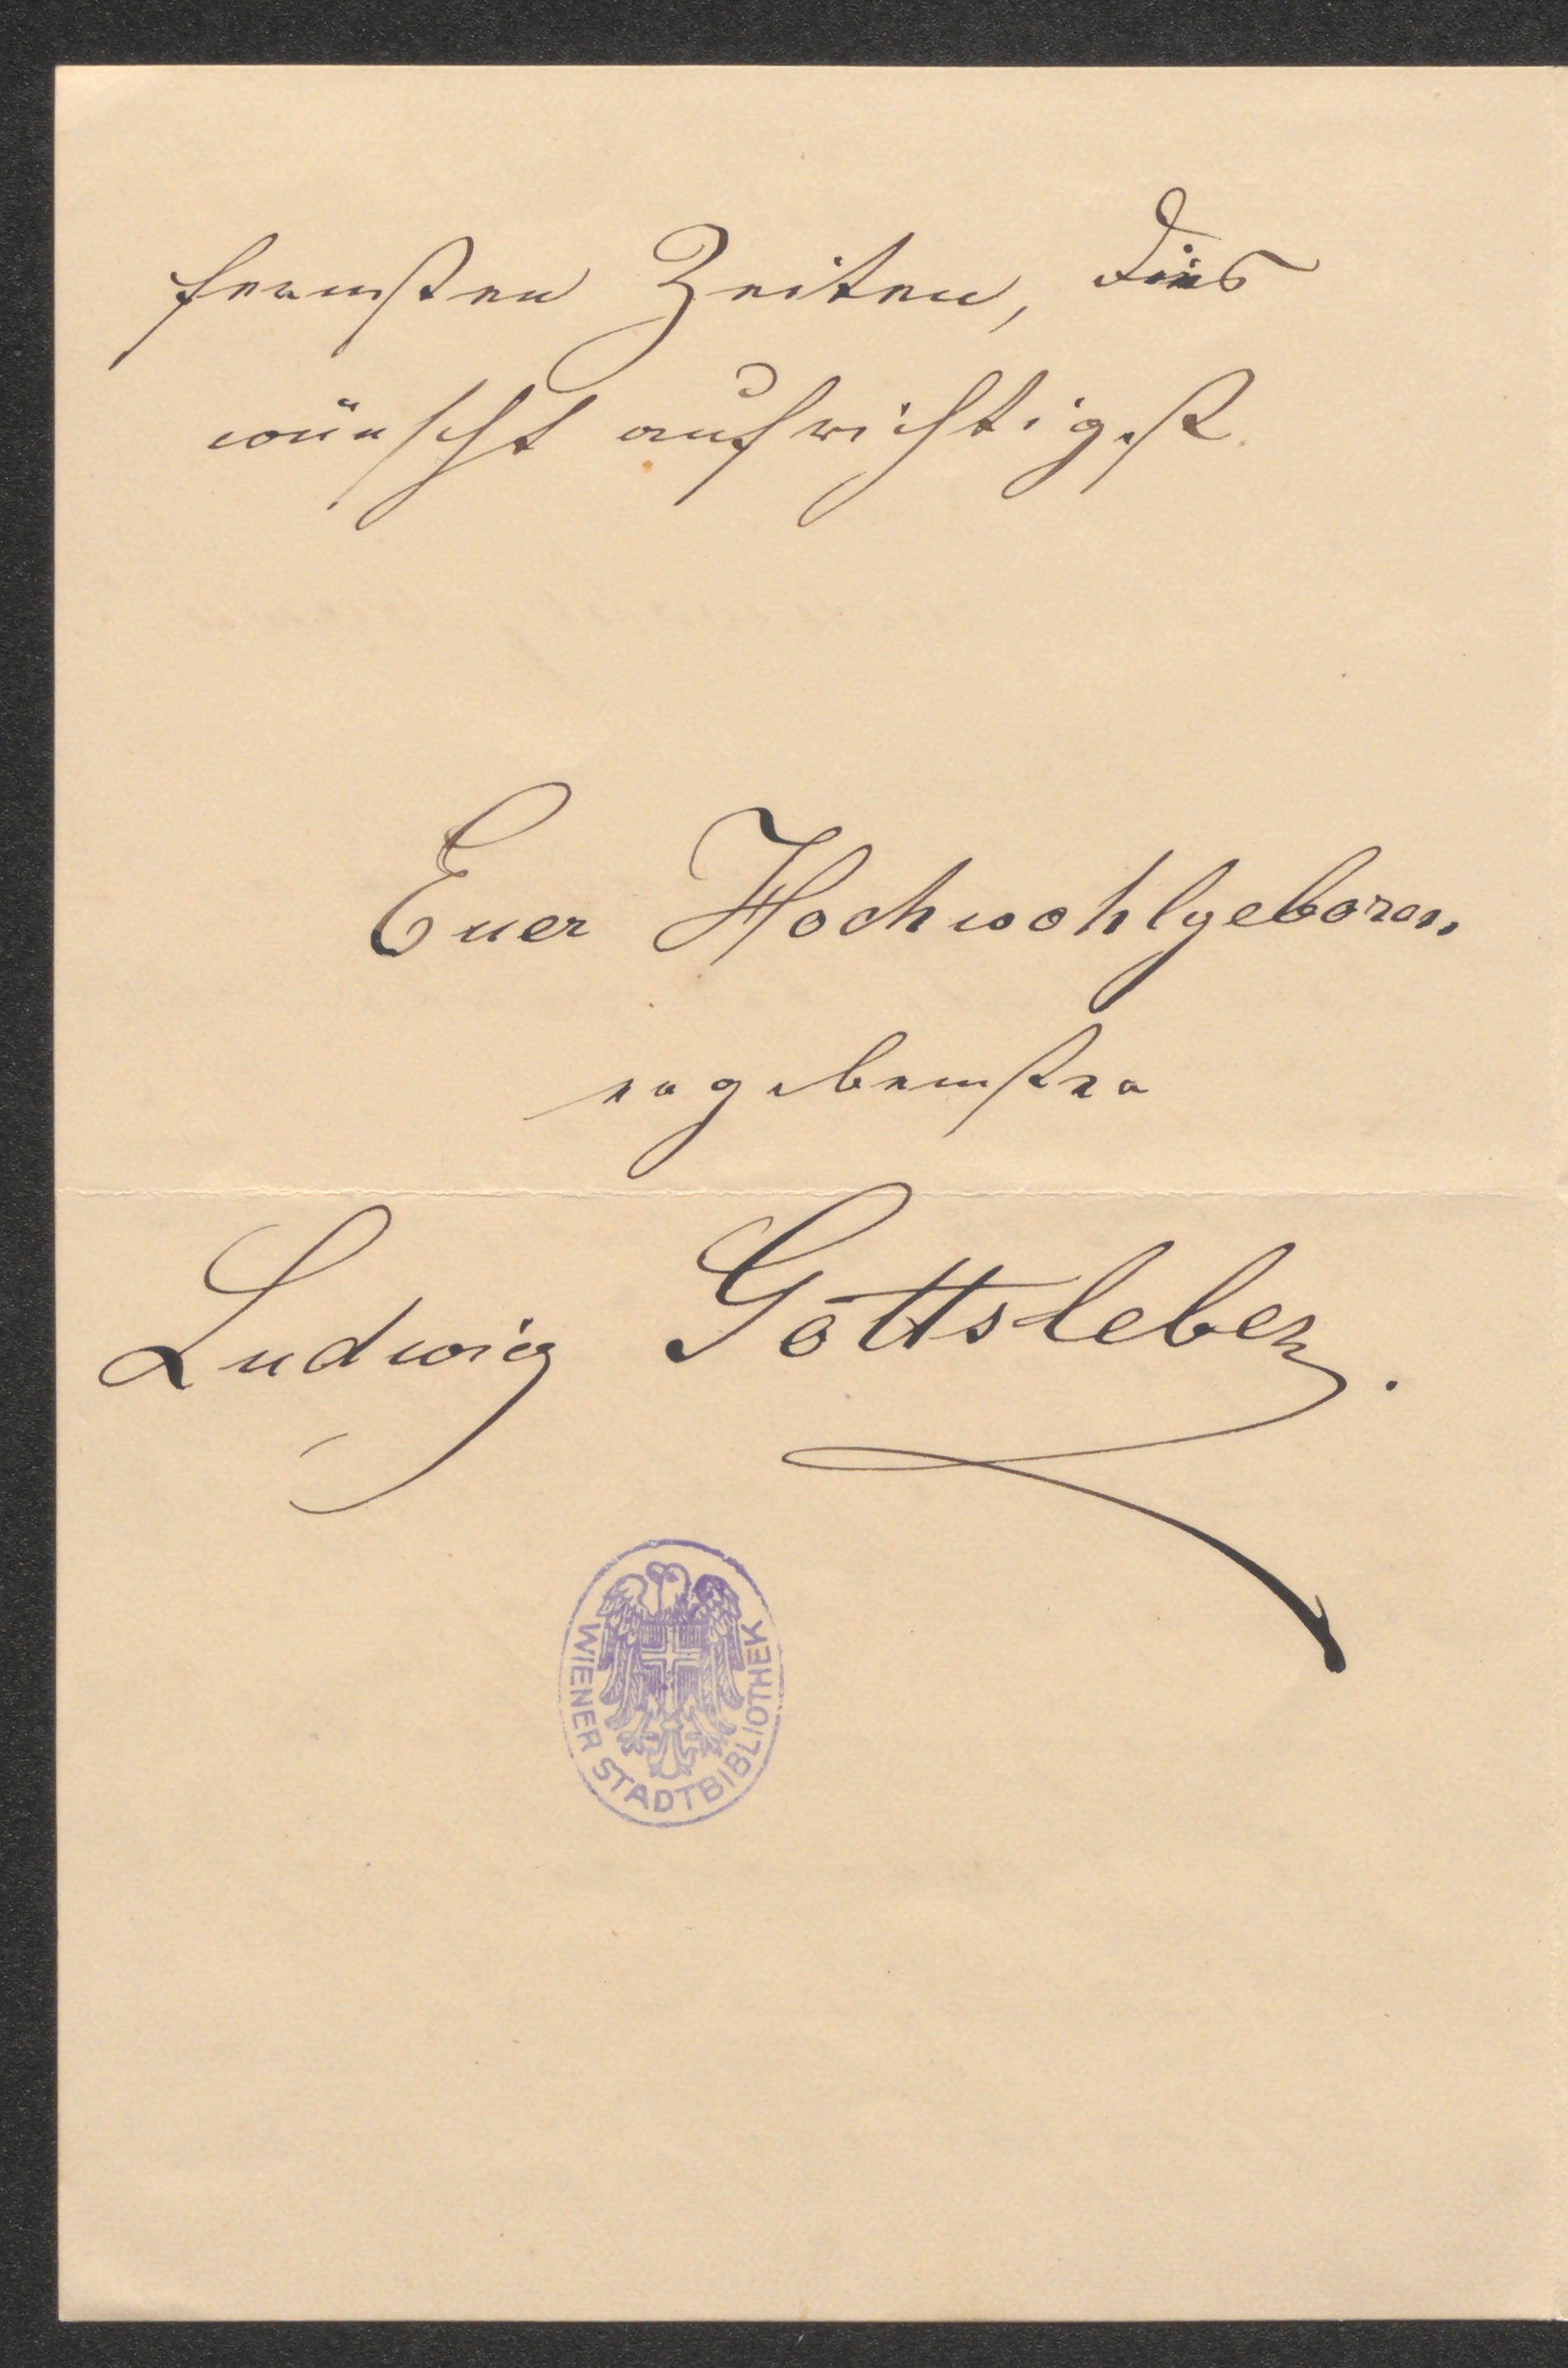 fernsten Zeiten, dies
wünscht aufrichtigst
Euer Hochwohlgeboren
ergebenster
Ludwig Gottsleben.
WIENER STADTBIBLIOTHEK